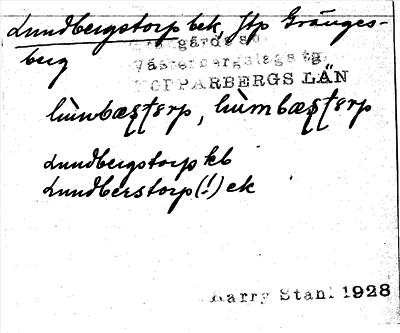 Lundbergstorp bek, Jtp Gränges-
berg
Grangärde sn
Västerbergslags tg.
KOPPARBERGS LÄN
lùmbæʂʈɛrp, lùmbæʂʈɛrp
Lundbergstorp kb
Lundberstorp(!) ek
Harry Ståhl 1928